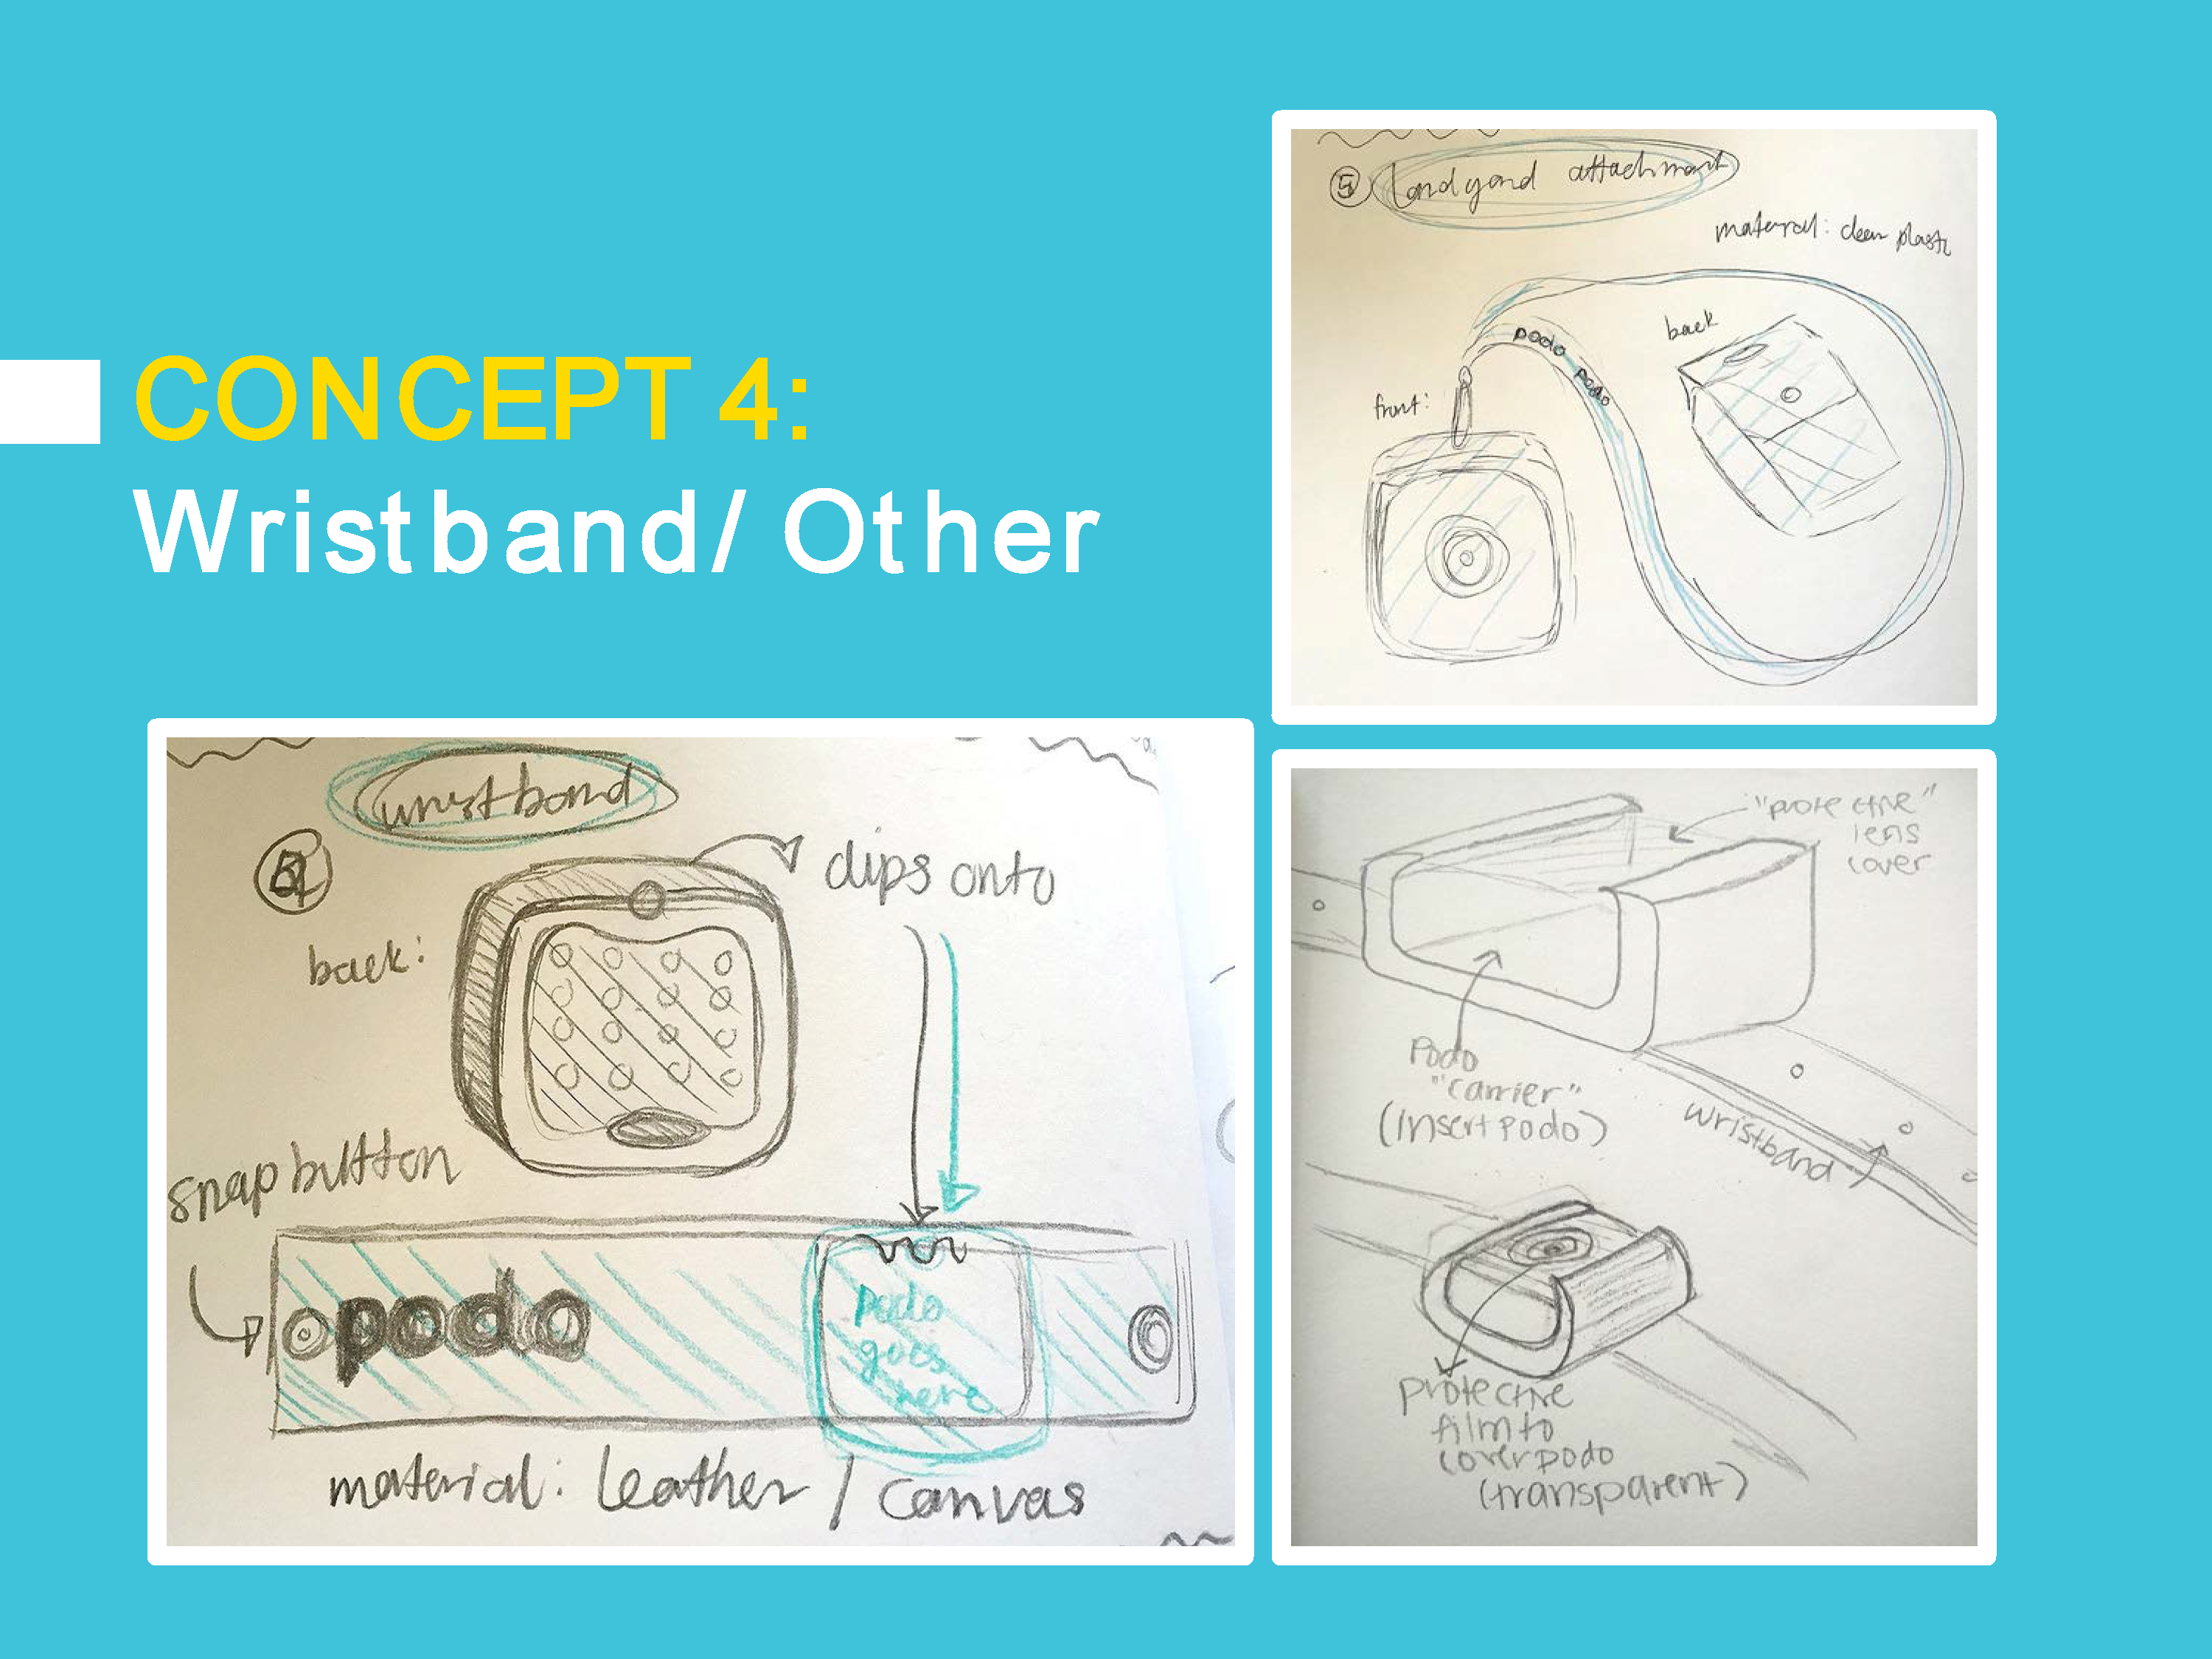 CONCEPT 4:
Wristband/ Other
5 landyand attachment
material: clear plastic
podo
podo
back
front:
wristband
back:
clips onto
snap button
podo
podo
goes
here
material: leather / canvas
"protective"
lens
cover
Podo
"carrier"
(insert podo)
wristband
protective
film to
cover podo
(transparent)